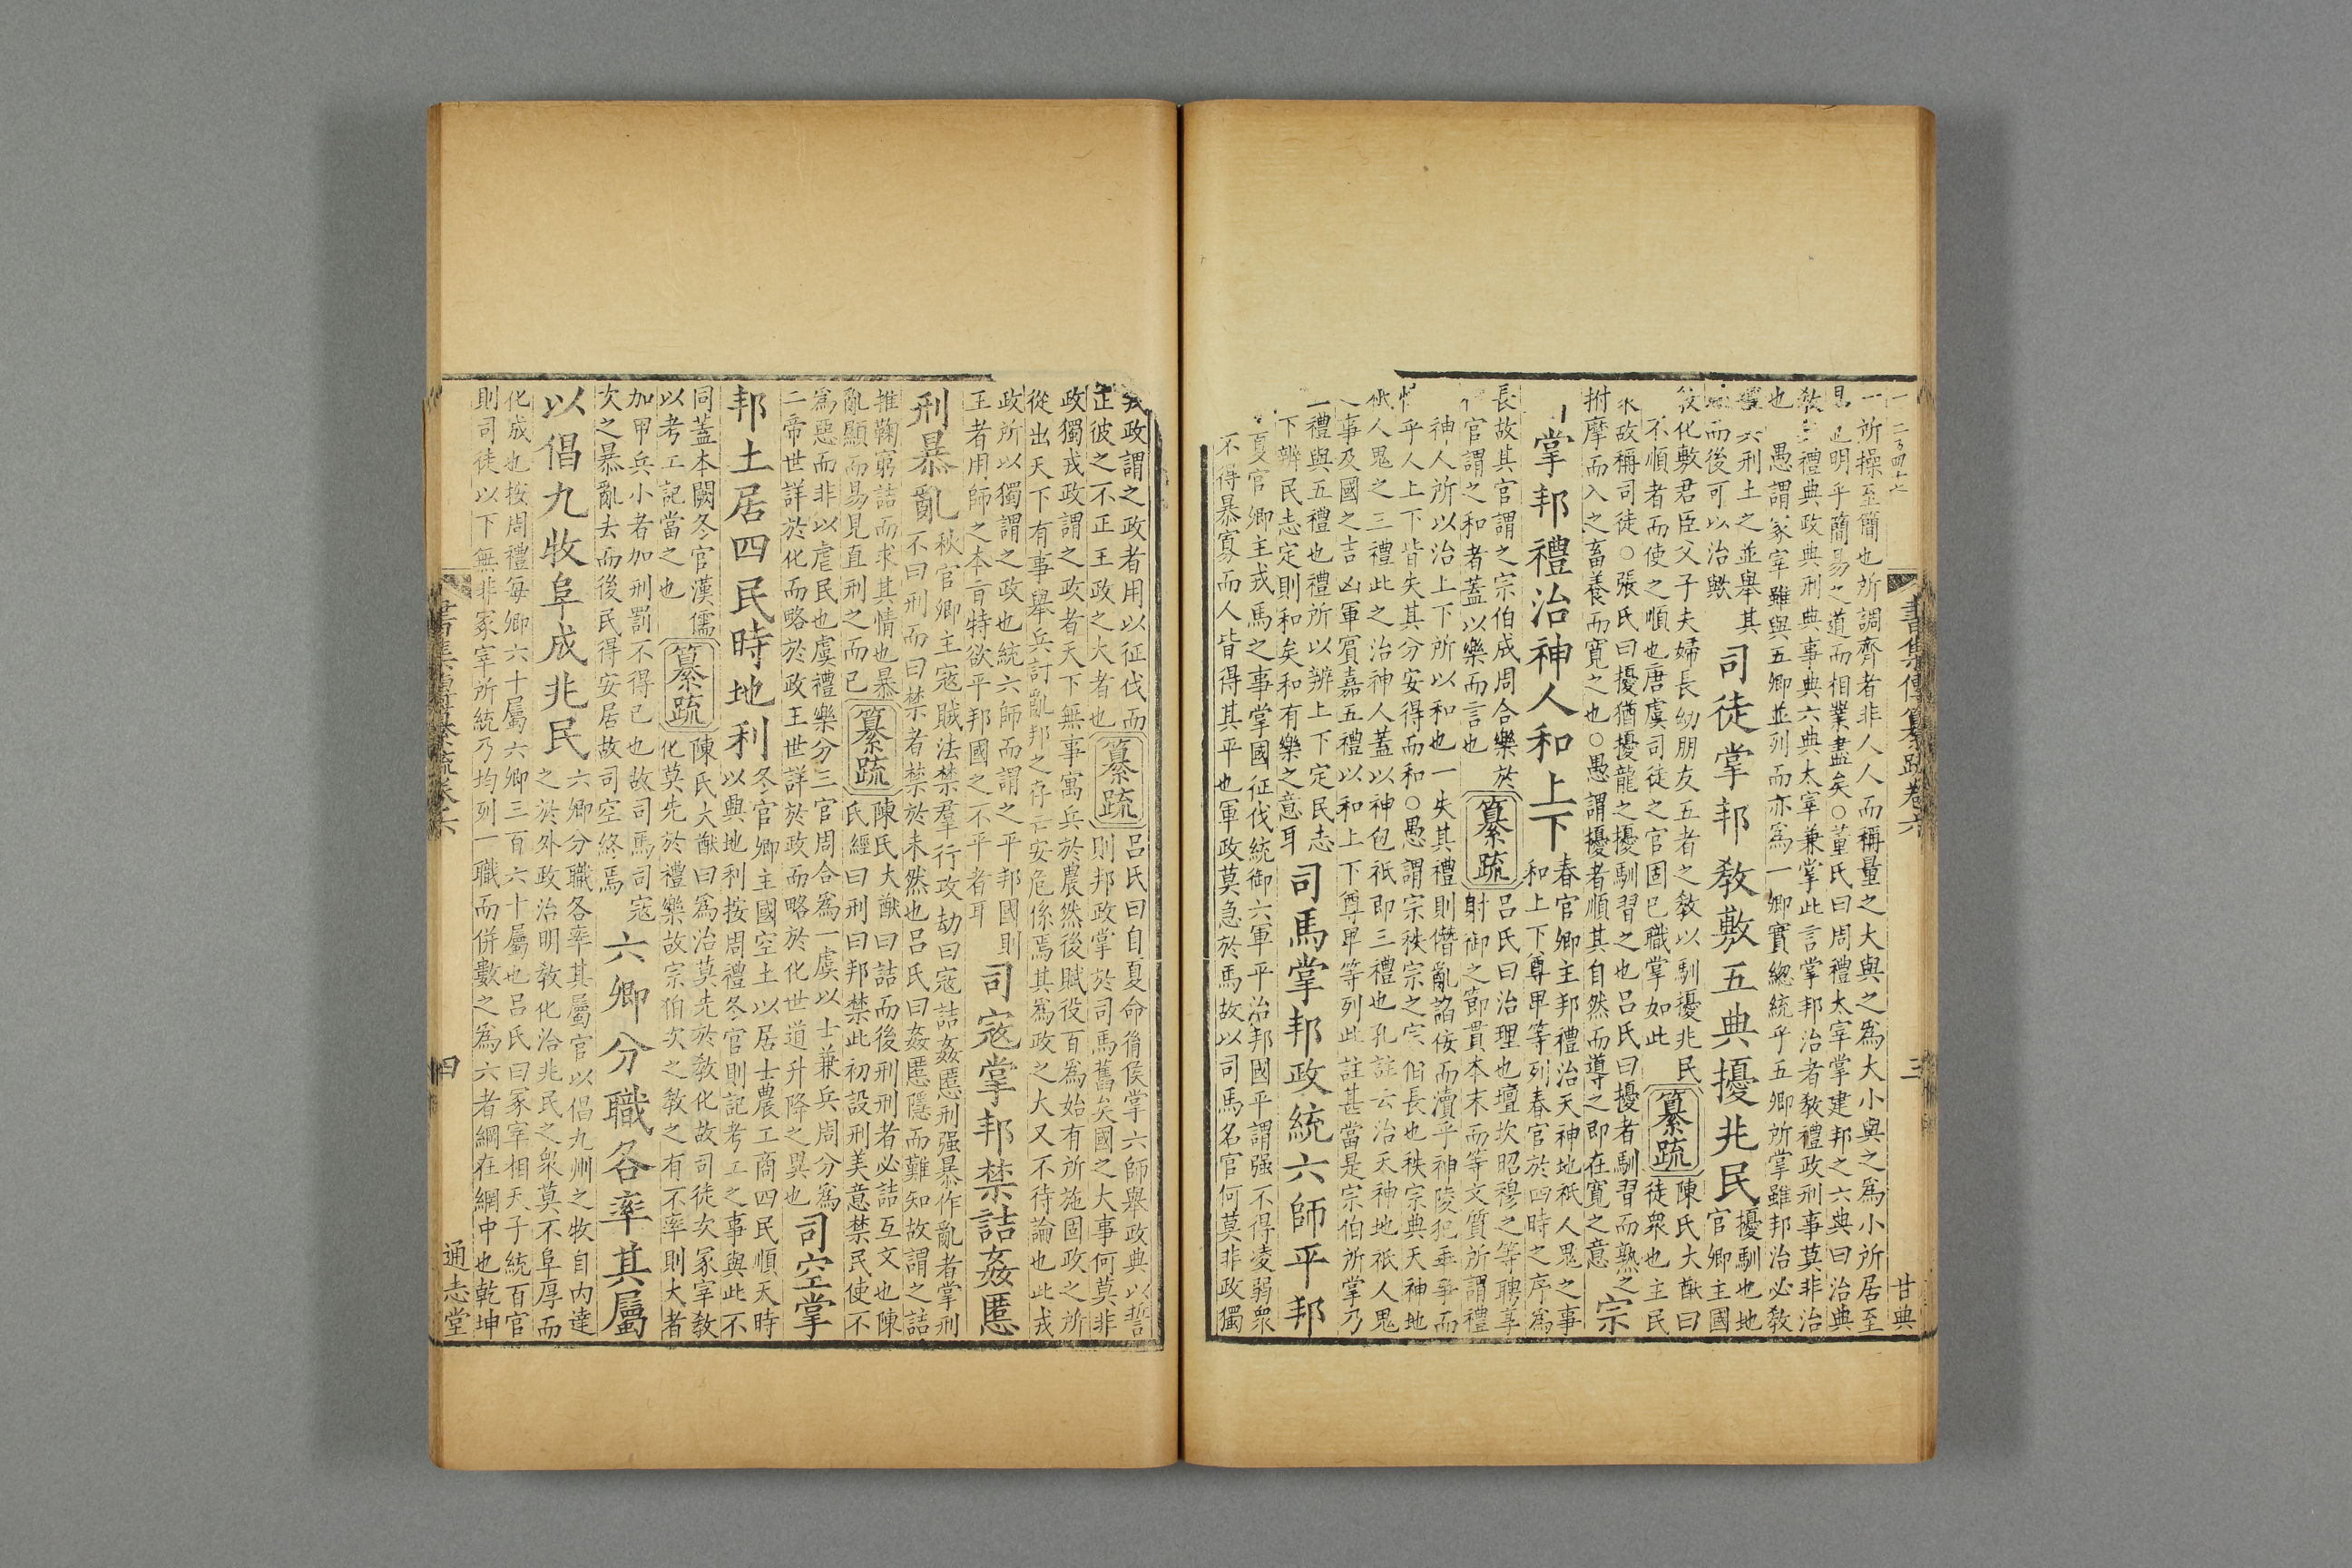 書集傳纂疏卷六 三 甘典
所操至簡也所調齊者非人人而稱量之大與之爲大小與之爲小所居至
已明乎簡易之道而相業盡矣○董氏曰周禮太宰掌建邦之六典曰治典
敎禮典政典刑典事典六典太宰兼掌此言掌邦治者敎禮政刑事莫非治
也愚謂冢宰雖與五卿並列而亦爲一卿實緫統乎五卿所掌雖邦治必敎
刑土之並舉其
而後可以治歟
司徒掌邦敎敷五典擾兆民
擾馴也地
官卿主國
敎化敷君臣父子夫婦長幼朋友五者之敎以馴擾兆民
不順者而使之順也唐虞司徒之官固已職掌如此
纂疏
陳氏大猷曰
徒衆也主民
故稱司徒○張氏曰擾猶擾龍之擾馴習之也呂氏曰擾者馴習而熟之
拊摩而入之畜養而寬之也○愚謂擾者順其自然而導之即在寬之意
宗
掌邦禮治神人和上下
春官卿主邦禮治天神地祇人鬼之事
和上下尊卑等列春官於四時之序爲
長故其官謂之宗伯成周合樂於
官謂之和者蓋以樂而言也
纂疏
呂氏曰治理也壇坎昭穆之等聘享
射御之節貫本末而等文質所謂禮
神人所以治上下所以和也一失其禮則僭亂諂侫而瀆乎神陵犯乖爭而
乎人上下皆失其分安得而和○愚謂宗秩宗之宗伯長也秩宗典天神地
人鬼之三禮此之治神人蓋以神包祇即三禮也孔註云治天神地祇人鬼
事及國之吉凶軍賓嘉五禮以和上下尊卑等列此註甚當是宗伯所掌乃
禮與五禮也禮所以辨上下定民志
下辨民志定則和矣和有樂之意耳
司馬掌邦政統六師平邦
夏官卿主戎馬之事掌國征伐統御六軍平治邦國平謂强不得凌弱衆
不得暴寡而人皆得其平也軍政莫急於馬故以司馬名官何莫非政獨
戎政謂之政者用以征伐而
正彼之不正王政之大者也
纂疏
呂氏曰自夏命胤侯掌六師舉政典以誓
則邦政掌於司馬舊矣國之大事何莫非
政獨戎政謂之政者天下無事寓兵於農然後賦役百爲始有所施固政之所
從出天下有事舉兵討亂邦之存亡安危係焉其爲政之大又不待論也此戎
政所以獨謂之政也統六師而謂之平邦國則
王者用師之本旨特欲平邦國之不平者耳
司寇掌邦禁詰姦慝
刑暴亂
秋官卿主寇賊法禁羣行攻劫曰寇詰姦慝刑强暴作亂者掌刑
不曰刑而曰禁者禁於未然也呂氏曰姦慝隱而難知故謂之詰
推鞠窮詰而求其情也暴
亂顯而易見直刑之而已
纂疏
陳氏大猷曰詰而後刑刑者必詰互文也陳
氏經曰刑曰邦禁此初設刑美意禁民使不
爲惡而非以虐民也虞禮樂分三官周合爲一虞以士兼兵周分爲
二帝世詳於化而略於政王世詳於政而略於化世道升降之異也
司空掌
邦土居四民時地利
冬官卿主國空土以居士農工商四民順天時
以興地利按周禮冬官則記考工之事與此不
同蓋本闕冬官漢儒
以考工記當之也
纂疏
陳氏大猷曰爲治莫先於敎化故司徒次冢宰敎
化莫先於禮樂故宗伯次之敎之有不率則大者
加甲兵小者加刑罰不得已也故司馬司寇
次之暴亂去而後民得安居故司空終焉
六卿分職各率其屬
以倡九牧阜成兆民
六卿分職各率其屬官以倡九州之牧自內達
之於外政治明敎化洽兆民之衆莫不阜厚而
化成也按周禮每卿六十屬六卿三百六十屬也呂氏曰冢宰相天子統百官
則司徒以下無非冢宰所統乃均列一職而併數之爲六者綱在網中也乾坤
四 通志堂